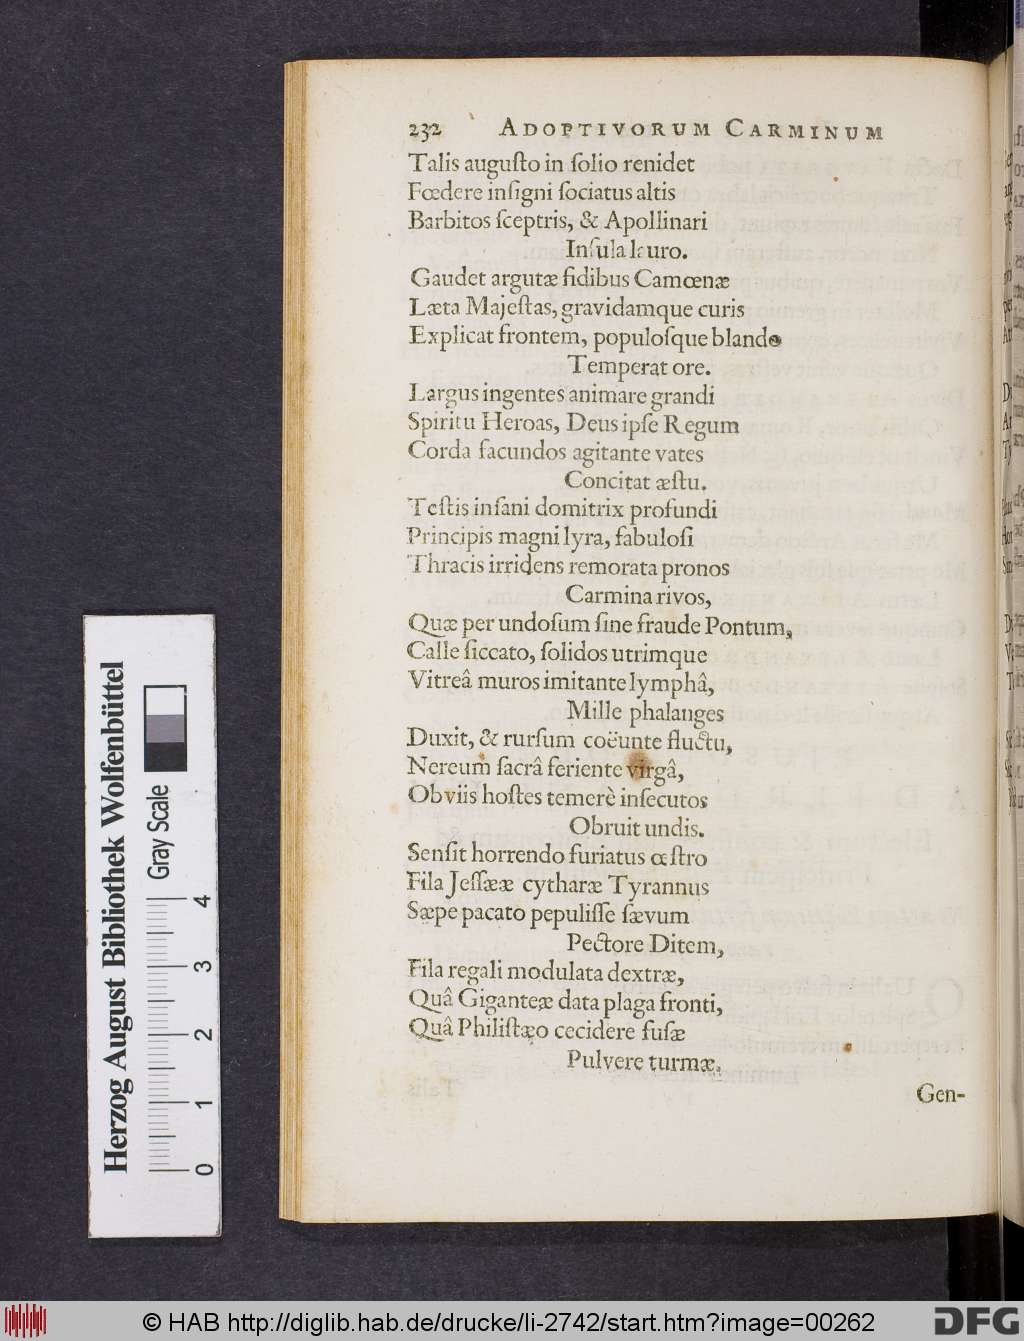 232 ADOPTIVORUM CARMINUM
Talis auguſto in ſolio renidet
Fœdere inſigni ſociatus altis
Barbitos ſceptris, & Apollinari
Inſula lauro.
Gaudet argutæ fidibus Camœnæ
Læta Majeſtas, gravidamque curis
Explicat frontem, populoſque blando
Temperat ore.
Largus ingentes animare grandi
Spiritu Heroas, Deus ipſe Regum
Corda facundos agitante vates
Concitat æſtu.
Teſtis inſani domitrix profundi
Principis magni lyra, fabuloſi
Thracis irridens remorata pronos
Carmina rivos,
Quæ per undoſum ſine fraude Pontum,
Calle ſiccato, ſolidos utrimque
Vitreâ muros imitante lymphâ,
Mille phalanges
Duxit, & rurſum coëunte fluctu,
Nereum ſacrâ feriente virgâ,
Obviis hoſtes temerè inſecutos
Obruit undis.
Senſit horrendo furiatus œſtro
Fila Jeſſææ cytharæ Tyrannus
Sæpe pacato pepuliſſe ſævum
Pectore Ditem,
Fila regali modulata dextræ,
Quâ Giganteæ data plaga fronti,
Quâ Philiſtæo cecidere fuſæ
Pulvere turmæ.
Gen-
Herzog August Bibliothek Wolfenbüttel
Gray Scale
0 1 2 3 4
© HAB http://diglib.hab.de/drucke/li-2742/start.htm?image=00262
DFG